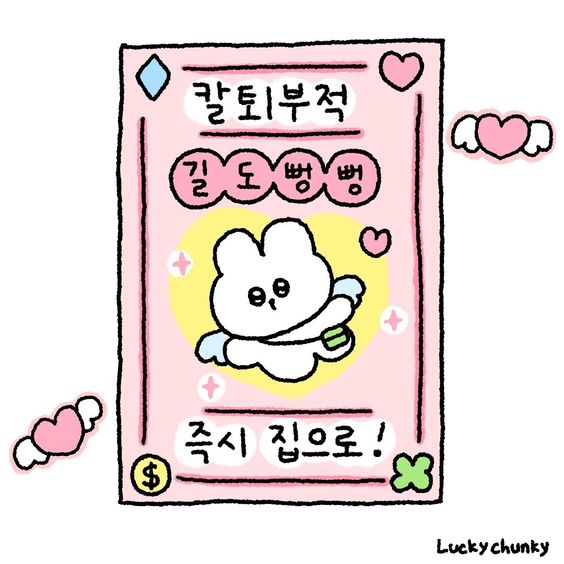 칼퇴부적
길도뻥뻥
즉시 집으로!
$
Luckychunky